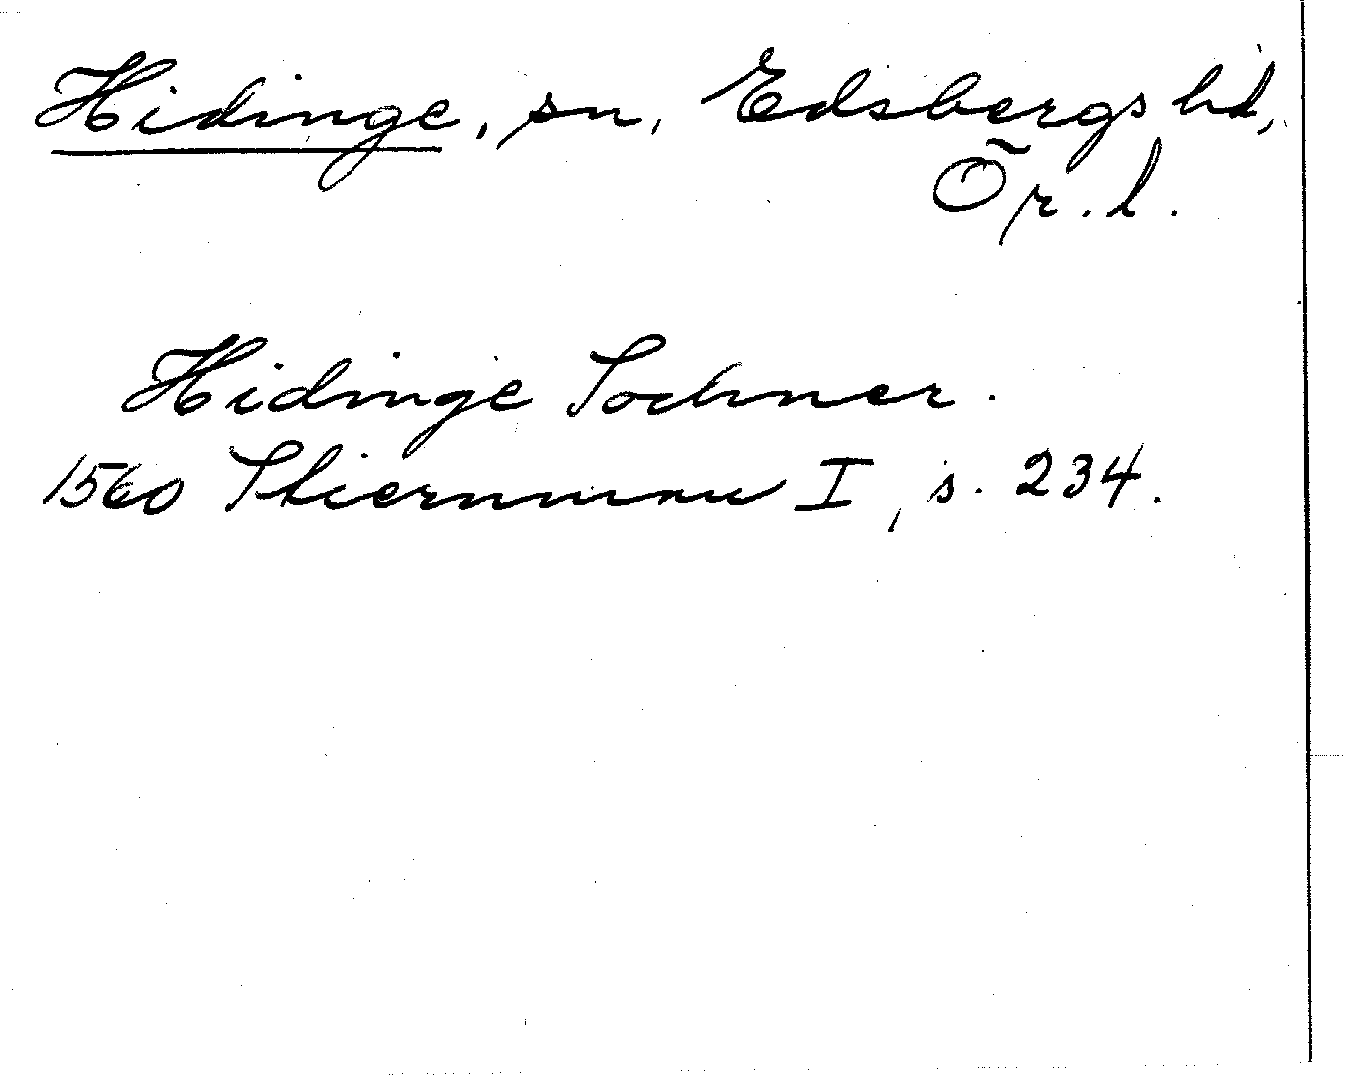 Hidinge, sn, Edsbergs hd,
Ör. l.
Hidinge Sochner.
1560 Stiernman I, s. 234.